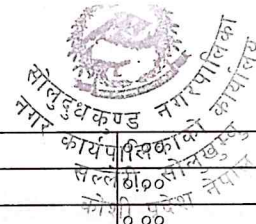 सोलुदुधकुण्ड नगरपालिका
नगर कार्यपालिकाको कार्यालय
सल्लेरी, सोलुखुम्बु
कोशी प्रदेश नेपाल
0.00